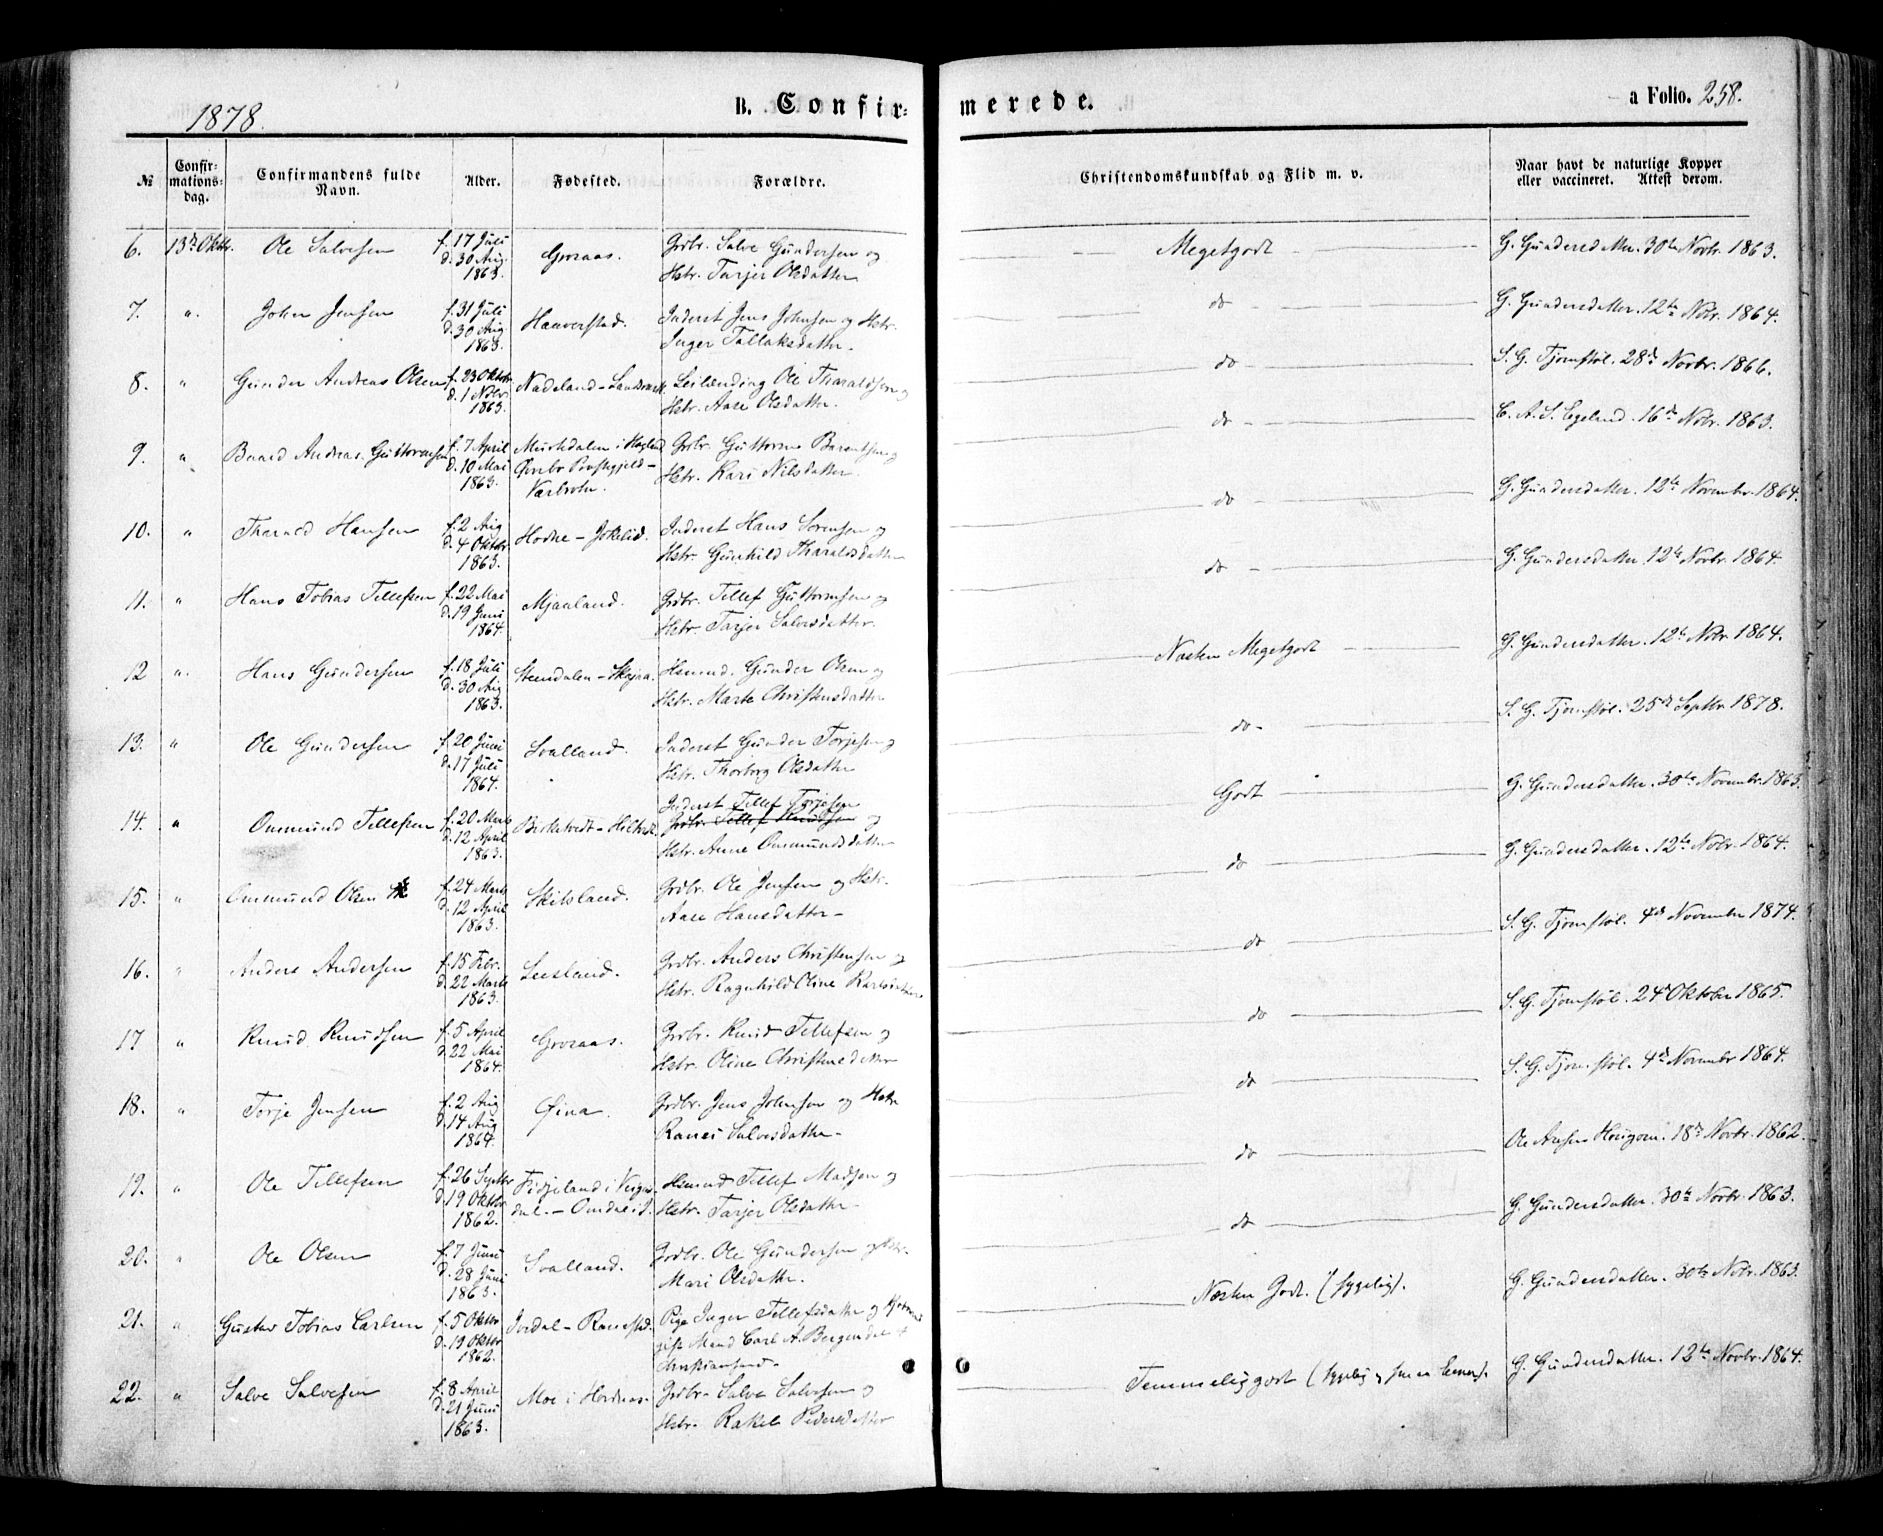 1878.
B. Confir=
merede.
a Folio. 258.
№
Confir=
mations=
dag.
Confirmandens fulde
Navn.
Alder.
Fødested.
Forældre.
Christendomskundskab og Flid m. v.
Naar havt de naturlige Kopper
eller vaccineret. Attest derom.
6. 13de Oktbr. Ole Salvesen f. 17 Juli d. 30 Aug. 1863. Groraas. Grdbr. Salve Gundersen og
Hstr. Tarjer Olsdatter
Megetgodt
G. Gundersdatter. 30te Novbr. 1863.
7. " John Jensen f. 31 Juli d. 30 Aug. 1863. Haaverstad. Inderst Jens Johnsen og Hstr.
Inger Tallaksdatter.
do
G. Gundersdatter. 12te Nvbr. 1864.
8. " Gunder Andreas Olsen f. 23 Oktbr. d. 1 Novbr. 1863. Nødeland - Leilænding Ole Tharaldsen og
Hstr. Aase Olsdatter.
do
S. G. Tjomstøl. 28de Novbr. 1866.
9. " Baard Andreas Guttormsen f. 7 April d. 10 Mai 1863. i
Øvrebø Præstegjeld - Grdbr. Guttorm Berentsen og
Hstr. Kari Nilsdatter.
do
C. A. S. Egeland. 16de Nvbr. 1863.
10. " Tharald Hansen f. 2 Aug d. 4 Oktbr 1863. Hodne - Jokelid. Inderst Hans Sørensen og
Hstr. Gunhild Tharaldsdatter
do
G. Gundersdatter. 12te Novembr. 1864.
11. " Hans Tobias Tellefsen f. 22 Mai d. 19 Juni 1864. Mjaaland. Grdbr. Tellef Guttormsen og
Hstr. Tarjer Salvesdatter.
do
G. Gundersdatter. 12te Novbr. 1864.
12 " Hans Gundersen f. 18 Juli d. 30 Aug 1863. Steindalen - Hsmnd. Gunder Olsen og
Hstr. Marte Christensdatter
Næsten Megetgodt
G. Gundersdatter. 12te Nvbr 1864.
13. " Ole Gundersen f. 20 Juni d. 17 Juli 1864. Svalland. Inderst Gunder Torjesen og
Hstr. Thorborg Olsdatter
do
S. G. Tjomstøl. 25de Septbr 1878.
14. " Ommund Tellefsen f. 20 Marts d. 12 April 1863. Birketvedt - Inderst Tellef Torjesen
Grdbr. Tellef Knudsen og
Hstr. Anne Ommundsdatter
Godt
G. Gundersdatter. 30te Novembr. 1863.
15. " Ommund Olsen f. 24 Marts d. 12 April 1863. Skitsland. Grdbr. Ole Jensen og Hstr.
Aase Hansdatter -
do
G. Gundersdatter. 12te Nvbr. 1864.
16. " Anders Andersen f. 15 Febr. d. 22 Marts 1863. Leesland. Grdbr. Anders Christensen og
Hstr. Ragnhild Oline Karlsdatter
do
S. G. Tjomstøl. 4de November 1874.
17 " Knud Knudsen f. 5 April d. 22 Mai 1864. Groraas. Grdbr. Knud Tellefsen og
Hstr. Oline Christensdatter
do
S. G. Tjomstøl. 24de Oktober 1865.
18. " Torje Jensen f. 2 Aug d. 14 Aug 1864. Øina. Grdbr. Jens Johnsen og Hstr.
Salvesdatter -
do
S. G. Tjomstøl. 4de Novembr 1864.
19. " Ole Tellefsen f. 26 Septbr d. 19 Oktbr 1862. Fidjeland i
Hsmnd Tellef Madsen og
Hstr. Tarjer Olsdatter
do
Ole 18de Novbr. 1862.
20. " Ole Olsen f. 7 Juni d. 28 Juni 1863. Svalland. Grdbr. Ole Gundersen og Hstr.
Mari Olsdatter.
do
G. Gundersdatter. 30te Novbr. 1863.
21. " Gustav Tobias Carlsen f. 5 Oktbr d. 19 Oktbr 1862. Jordal - Pige Inger Tellefsdatter og
gift Mand Carl A. Bergendal
Christiansand -
Næsten Godt. (sygelig).
G. Gundersdatter. 30te Nvbr. 1863.
22. " Salve Salvesen f. 8 April d. 21 Juni 1863. Moe i Grdbr. Salve Salvesen og
Hstr. Rakel Pedersdatter
Temmeliggodt (sygelig og
G. Gundersdatter. 12te Novbr. 1864.